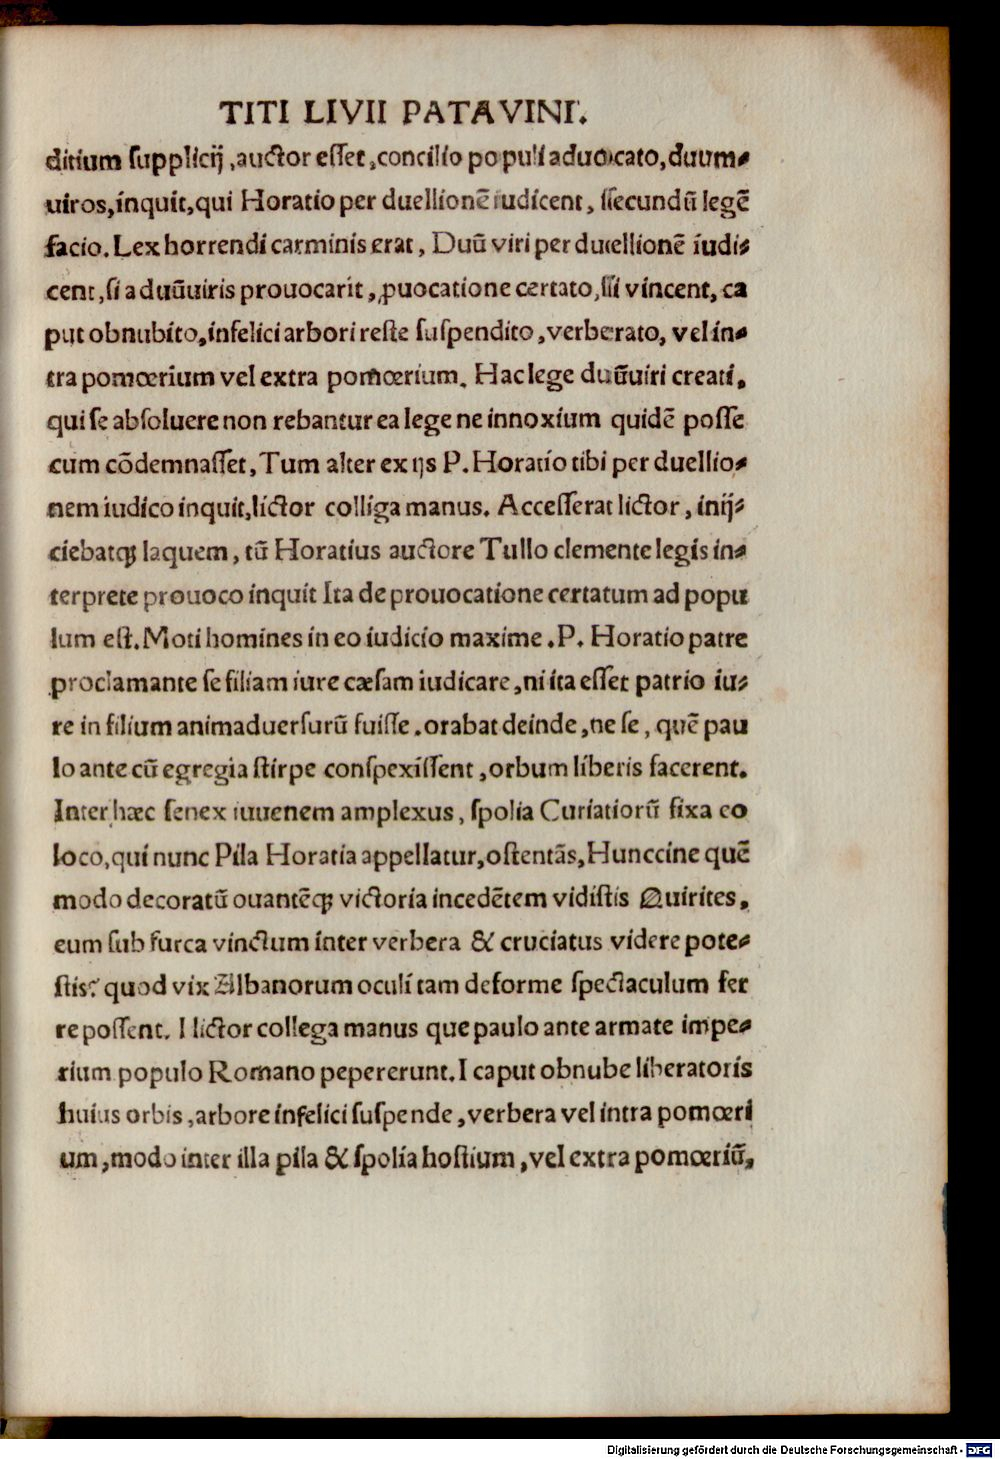 TITI LIVII PATAVINI.
ditium supplicij, auctor esset, concilio populi aduocato, duum-
uiros, inquit, qui Horatio per duellionẽ iudicent, ssecundũ legẽ
facio. Lex horrendi carminis erat, Duũ viri per ducellionẽ iudi-
cent, si a duũuiris prouocarit, ꝓuocatione certato, ssi vincent, ca
put obnubito, infelici arbori reste suspendito, verberato, vel in-
tra pomœrium vel extra pomœrium. Hac lege duũuiri creati,
qui se absoluere non rebantur ea lege ne innoxium quidẽ posse
cum cõdemnasset, Tum alter ex ijs P. Horatio tibi per duellio-
nem iudico inquit, lictor colliga manus. Accesserat lictor, inij-
ciebatqꝫ laquem, tũ Horatius auctore Tullo clemente legis in-
terprete prouoco inquit Ita de prouocatione certatum ad popu
lum est. Moti homines in eo iudicio maxime. P. Horatio patre
proclamante se filiam iure cæsam iudicare, ni ita esset patrio iu-
re in filium animaduersurũ fuisse. orabat deinde, ne se, quẽ pau
lo ante cũ egregia stirpe conspexissent, orbum liberis facerent.
Inter hæc senex iuuenem amplexus, spolia Curiatiorũ fixa eo
loco, qui nunc Pila Horatia appellatur, ostentãs, Hunccine quẽ
modo decoratũ ouantẽqꝫ victoria incedẽtem vidistis Quirites,
eum sub furca vinctum inter verbera & cruciatus videre pote-
stis? quod vix Albanorum oculi tam deforme spectaculum fer
re possent. I lictor collega manus que paulo ante armate impe-
rium populo Romano pepererunt. I caput obnube liberatoris
huius orbis, arbore infelici suspende, verbera vel intra pomœri
um, modo inter illa pila & spolia hostium, vel extra pomœriũ,
Digitalisierung gefördert durch die Deutsche Forschungsgemeinschaft - DFG